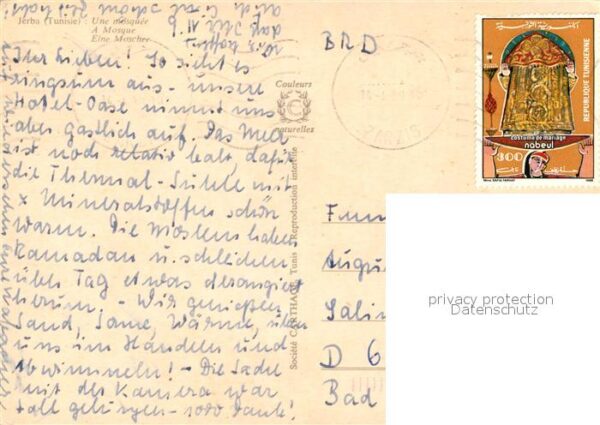 Jerba (Tunisie) : Une mosquée
A Mosque
Eine Moschee
Ihr Lieben! So sieht es
ringsum aus - unsere
Hotel-Oase nimmt uns
aber gastlich auf. Das Meer
ist noch relativ kalt, dafür
die Thermal-Suhle mit
x Mineralstoffen schön
warm. Die Moslems haben
Ramadan u. schleichen
über Tag etwas derangiert
herum. - Wir genießen
Sand, Sonne, Wärme, üben
uns im Handeln und
Abwimmeln! - Die Sache
mit der Kamera war
toll gelungen - 1000 Dank!
Couleurs
Naturelles
Société CARTHAGE Tunis - Reproduction interdite
BRD
REPUBLIQUE TUNISIENNE
costume de mariage
nabeul
300
Augu
Salin
D 6
Bad
privacy protection
Datenschutz